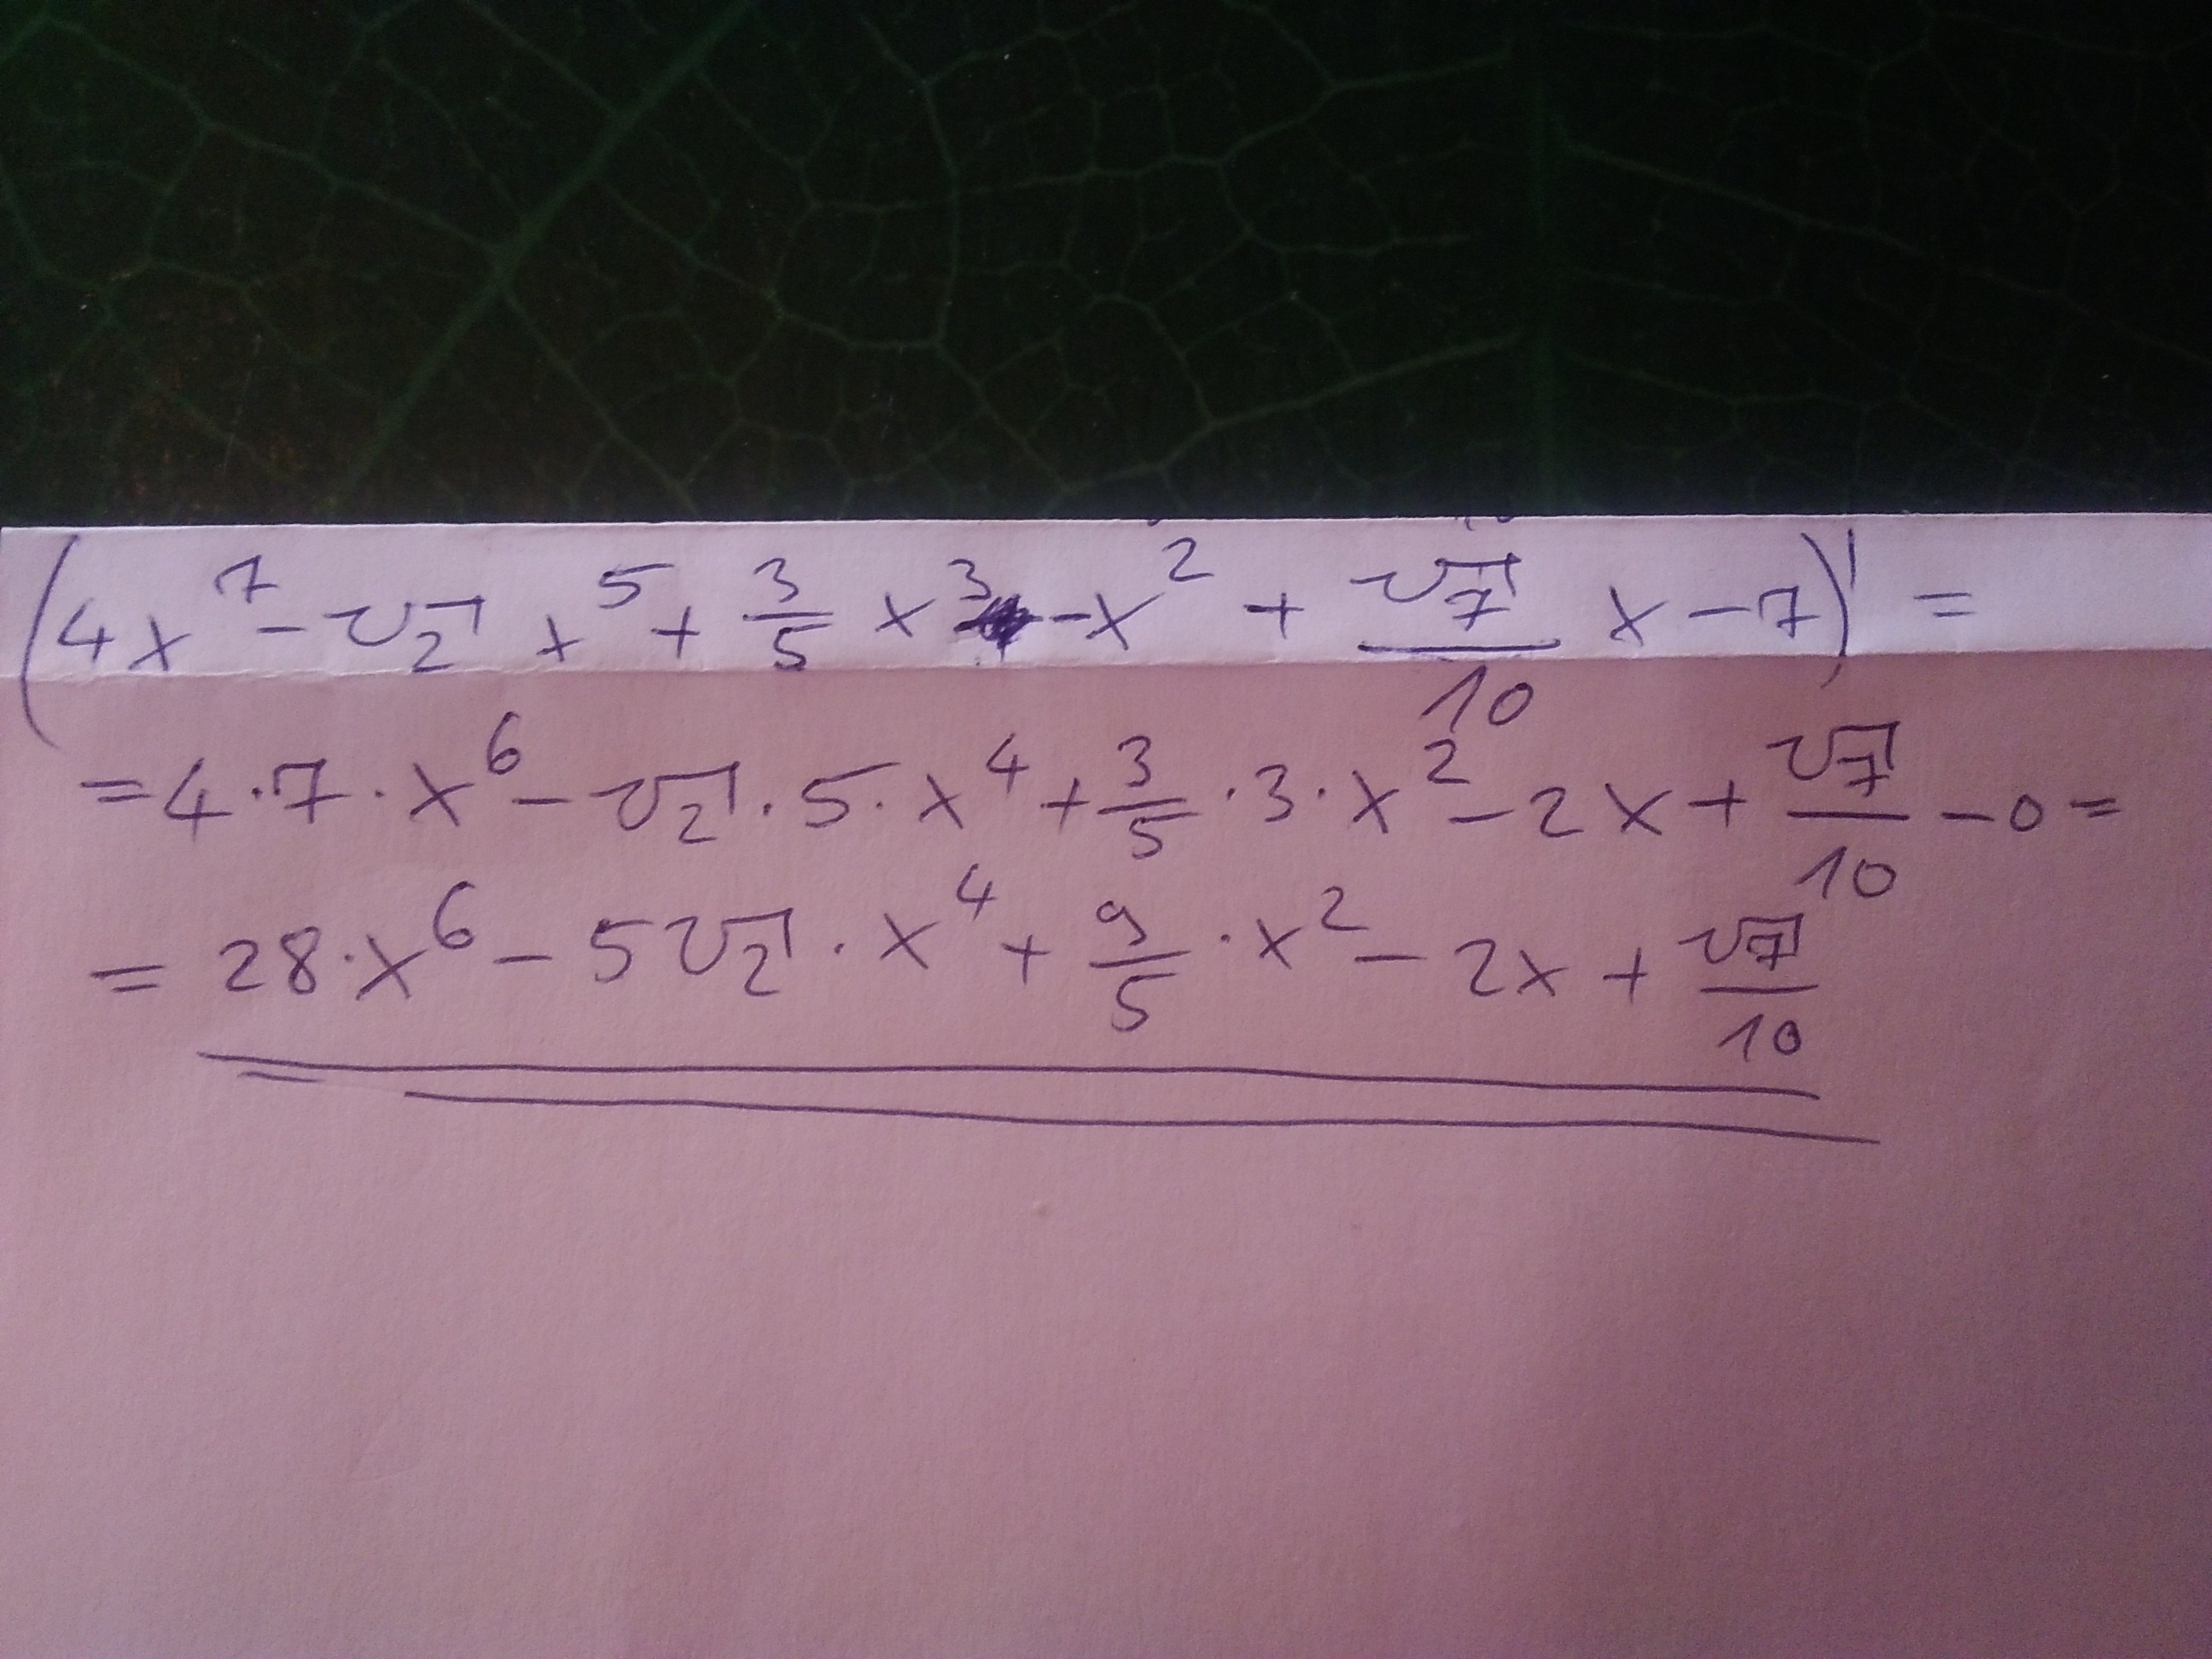 (4x⁷ - √2 x⁵ + 3/5 x³ - x² + √7/10 x - 7)' =
= 4·7·x⁶ - √2·5·x⁴ + 3/5·3·x² - 2x + √7/10 - 0 =
= 28·x⁶ - 5√2·x⁴ + 9/5·x² - 2x + √7/10